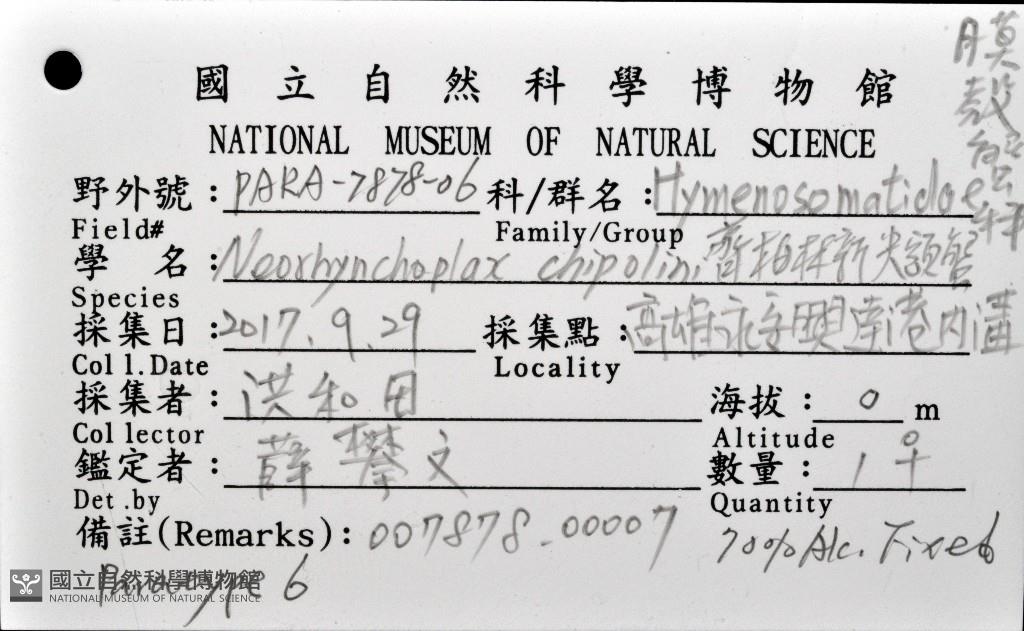 國立自然科學博物館
NATIONAL MUSEUM OF NATURAL SCIENCE
膜殼蟹科
野外號：PARA-7878-06 科/群名：Hymenosomatidae
Field# Family/Group
學名：Neorhynchoplax chipolini 齊柏林新尖額蟹
Species
採集日：2017.9.29 採集點：高雄永安興達港內溝
Coll.Date Locality
採集者：洪和田 海拔：0 m
Collector Altitude
鑑定者：薛攀文 數量：1♀
Det.by Quantity
備註(Remarks)：007878-00007 70% Alc. Fixed
Paratype 6
國立自然科學博物館
NATIONAL MUSEUM OF NATURAL SCIENCE